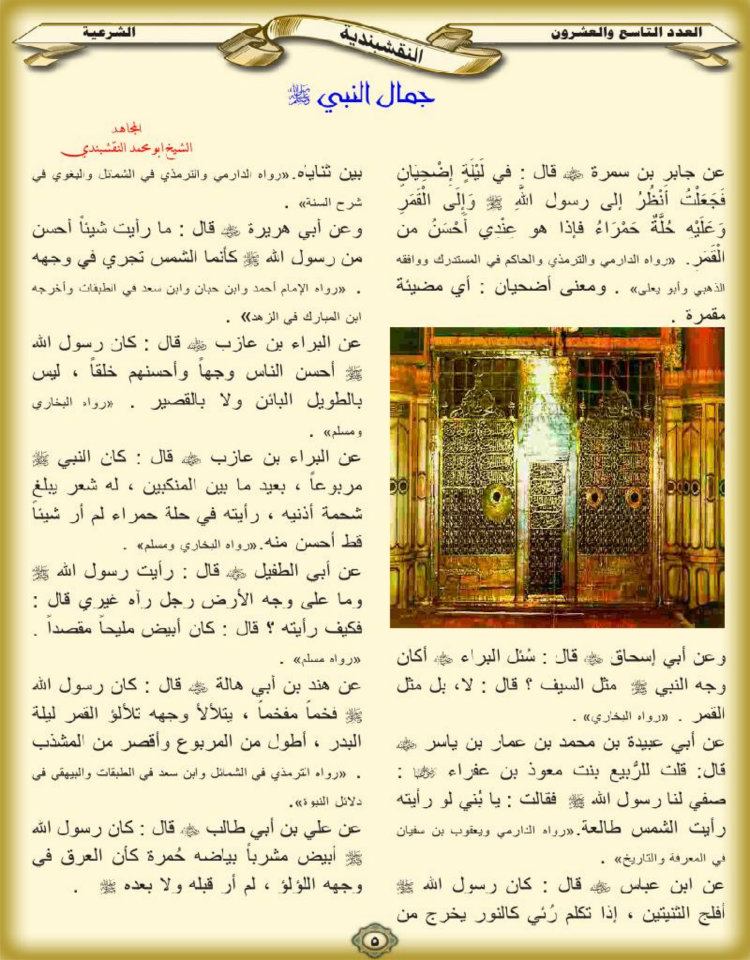 العدد التاسع والعشرون
النقشبندية
الشرعية
جمال النبي ﷺ
المجاهد
الشيخ ابو محمد النقشبندي
عن جابر بن سمرة ﷺ قال : في لَيْلَةٍ إِضْحِيَانٍ
فَجَعَلْتُ أَنْظُرُ إلى رسول اللهِ ﷺ وَإِلَى الْقَمَرِ
وَعَلَيْه حُلَّةٌ حَمْرَاءُ فإذا هو عِنْدِي أَحْسَنُ من
الْقَمَرِ. «رواه الدارمي والترمذي والحاكم في المستدرك ووافقه
الذهبي وأبو يعلى» . ومعنى أضحيان : أي مضيئة
مقمرة .
وعن أبي إسحاق قال : سُئل البراء أكان
وجه النبي ﷺ مثل السيف ؟ قال : لا، بل مثل
القمر . «رواه البخاري» .
عن أبي عبيدة بن محمد بن عمار بن ياسر
قال: قلت للرُّبيع بنت معوذ بن عفراء :
صفي لنا رسول الله ﷺ فقالت : يا بُني لو رأيته
رأيت الشمس طالعة.«رواه الدارمي ويعقوب بن سفيان
في المعرفة والتاريخ» .
عن ابن عباس قال : كان رسول الله ﷺ
أفلج الثنيتين ، إذا تكلم رُئي كالنور يخرج من
بين ثناياه.«رواه الدارمي والترمذي في الشمائل والبغوي في
شرح السنة» .
وعن أبي هريرة قال : ما رأيت شيئاً أحسن
من رسول الله ﷺ كأنما الشمس تجري في وجهه
. «رواه الإمام أحمد وابن حبان وابن سعد في الطبقات وأخرجه
ابن المبارك في الزهد» .
عن البراء بن عازب قال : كان رسول الله
ﷺ أحسن الناس وجهاً وأحسنهم خلقاً ، ليس
بالطويل البائن ولا بالقصير . «رواه البخاري
ومسلم» .
عن البراء بن عازب قال : كان النبي ﷺ
مربوعاً ، بعيد ما بين المنكبين ، له شعر يبلغ
شحمة أذنيه ، رأيته في حلة حمراء لم أر شيئاً
قط أحسن منه.«رواه البخاري ومسلم» .
عن أبي الطفيل قال : رأيت رسول الله ﷺ
وما على وجه الأرض رجل رآه غيري قال :
فكيف رأيته ؟ قال : كان أبيض مليحاً مقصداً .
«رواه مسلم» .
عن هند بن أبي هالة قال : كان رسول الله
ﷺ فخماً مفخماً ، يتلألأ وجهه تلألؤ القمر ليلة
البدر ، أطول من المربوع وأقصر من المشذب
. «رواه الترمذي في الشمائل وابن سعد في الطبقات والبيهقي في
دلائل النبوة».
عن علي بن أبي طالب قال : كان رسول الله
ﷺ أبيض مشرباً بياضه حُمرة كأن العرق في
وجهه اللؤلؤ ، لم أر قبله ولا بعده ﷺ .
٥